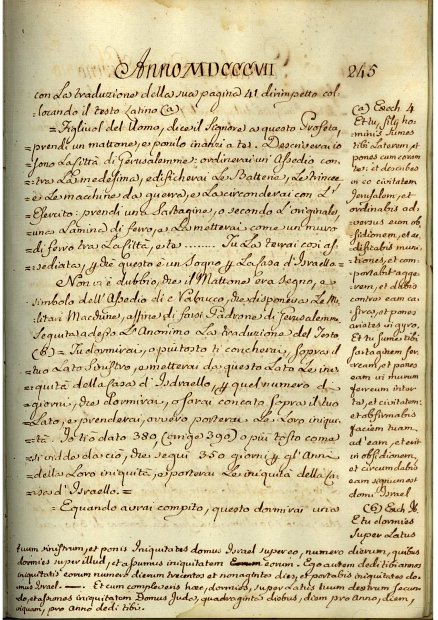 Anno MDCCCVII 245
con La traduzione della sua pagina 41 dirimpetto col-
locando il testo Latino (a)
= Figliuol del Uomo, dice il Signore a questo Profeta,
prendi un mattone, e ponlo inanzi a te. Descriverai io
sono La Città di Gerusalemme: ordinerai un'Assedio con-
tra La medesima, edificherai Le Batterie, Le trincee
e Le machine da guerra, e La circonderai con L'
Esercito: prendi una Sartagine, o secondo L'originale,
una Lamina di ferro, e La metterai come un muro
di ferro tra La Città, e te ........ Tu La terai così as-
sediata, che questo è un Sogno La Casa d'Israello =
Non v'è dubbio, che il Mattone era segno, e
simbolo dell'Assedio di Nabuco, che disponeva Le Mi-
litari Machine, affine di farsi Padrone di Gerusalemme.
Seguita adesso L'Anonimo La traduzione del Testo
(b) = Tu dormirai, o piutosto ti concherai, sopra il
tuo Lato Sinistro, e metterai da questo Lato Le ini-
quità della Casa d'Isdraello, quel numero di
giorni, che dormirai, o sarai concato sopra il tuo
Lato, e prenderai, ovvero porterai Le Loro iniqui-
tà. Io tio dato 380 (anzi 390) o più tosto coma
ciò, che segui 350 giorni gl'Anni
della Loro iniquità, e porterai Le iniquità della Ca-
sa d'Israello. =
= Equando avrai compito, questo dormirai una
(a) Ezech. 4
Et tu, fili ho-
minis sumes
tibi Laterem, et
pones eum coram
te: et describes
in eo civitatem
Jerusalem, et
ordinabis ad-
versus eum ob-
sidionem, et ae-
dificabis muni-
tiones, et com-
portabis agge-
rem, et dabis
contra eam ca-
stra, et pones
arietes in gyro.
Et tu sumes tibi
sartaginem fer-
ream, et pones
eam in murum
ferreum inter
te, et civitatem:
et obfirmabis
faciem tuam
ad eam, et erit
in obsidionem,
et circumdabis
eam signum est
domui Israel
(b) Ezech. 4
Et tu dormies
super Latus
tuum sinistrum, et ponis Iniquitates domus Israel super eo, numero dierum, quibus
dormies super illud, et assumes iniquitatem eorum. Ego autem dedi tibi annos
iniquitatis eorum numero dierum trecentos et nonaginta dies, et portabis iniquitates do-
mus Israel. — Et cum compleveris haec, dormies super Latus tuum destrum secun-
do, et assumes iniquitatem Domus Juda, quadraginta diebus, diem pro anno, diem,
inquam, pro anno dedi tibi.